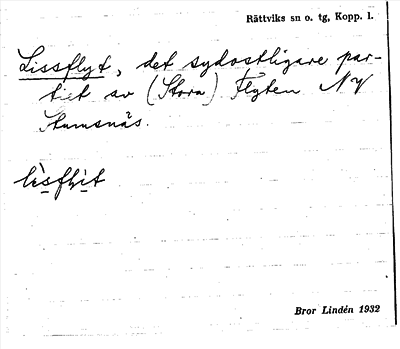 Rättviks sn o. tg, Kopp. l.
Lissflyt, det sydostligare par-
tiet av (Stora) Flyten NV
Stumsnäs.
lisflit
Bror Lindén 1932